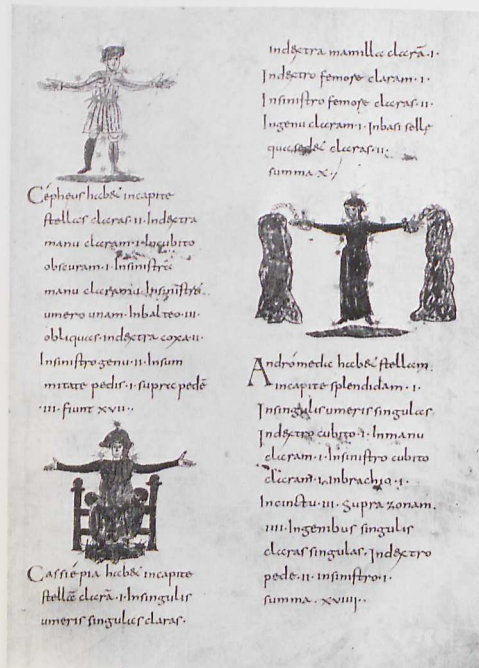 Cépheus habet incapite
stellas claras·II·Indextra
manu claram·I·Incubito
obscuram·I·Insinistra
manu claram·I·Insinistro
umero unam·Inbalteo·III·
obliquas·indextra coxa·II·
Insinistro genu·II·Insum
mitate pedis·I·supra pedē
·III·fiunt XVII··
Cassiépia habet incapite
stellā clarā·I·Insingulis
umeris singulas claras·
indextra mamilla clarā·I·
Indextro femore claram·I·
Insinistro femore claras·II·
Ingenu claram·I·Inbasi sellę
qua sedet claras·II·
summa X·
Andrómeda habet stellam
incapite splendidam·I·
Insingulis umeris singulas
Indextro cubito·I·Inmanu
claram·I·Insinistro cubito
claram·I·Inbrachio·I·
Incinctu·III·Supra zonam·
IIII·Ingenibus singulis
claras singulas·Indextro
pede·II·insinistro·I·
summa·XVIIII··